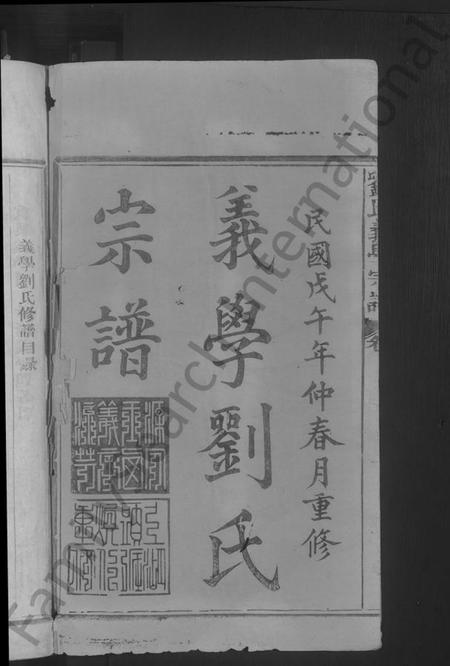 劉氏義學宗譜 卷
民國戊午年仲春月重修
義學劉氏
宗譜
義學劉氏修譜目錄
FamilySearch International